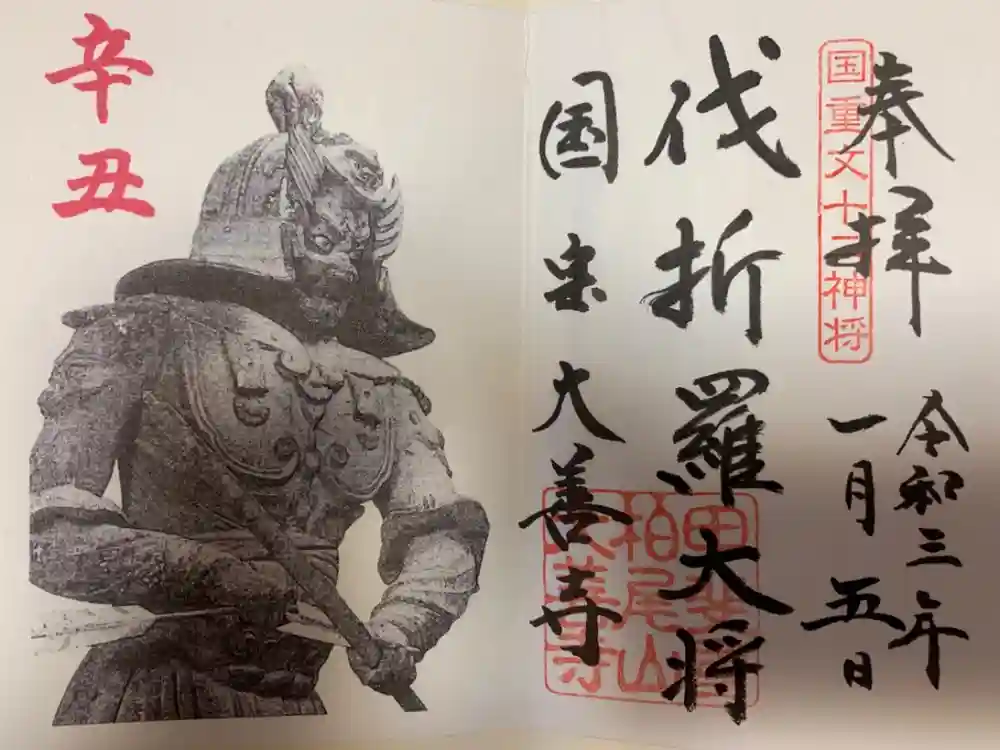 奉拝
国重文十二神将
令和三年
一月五日
伐折羅大将
国宝大善寺
柏尾山
大善寺
辛丑